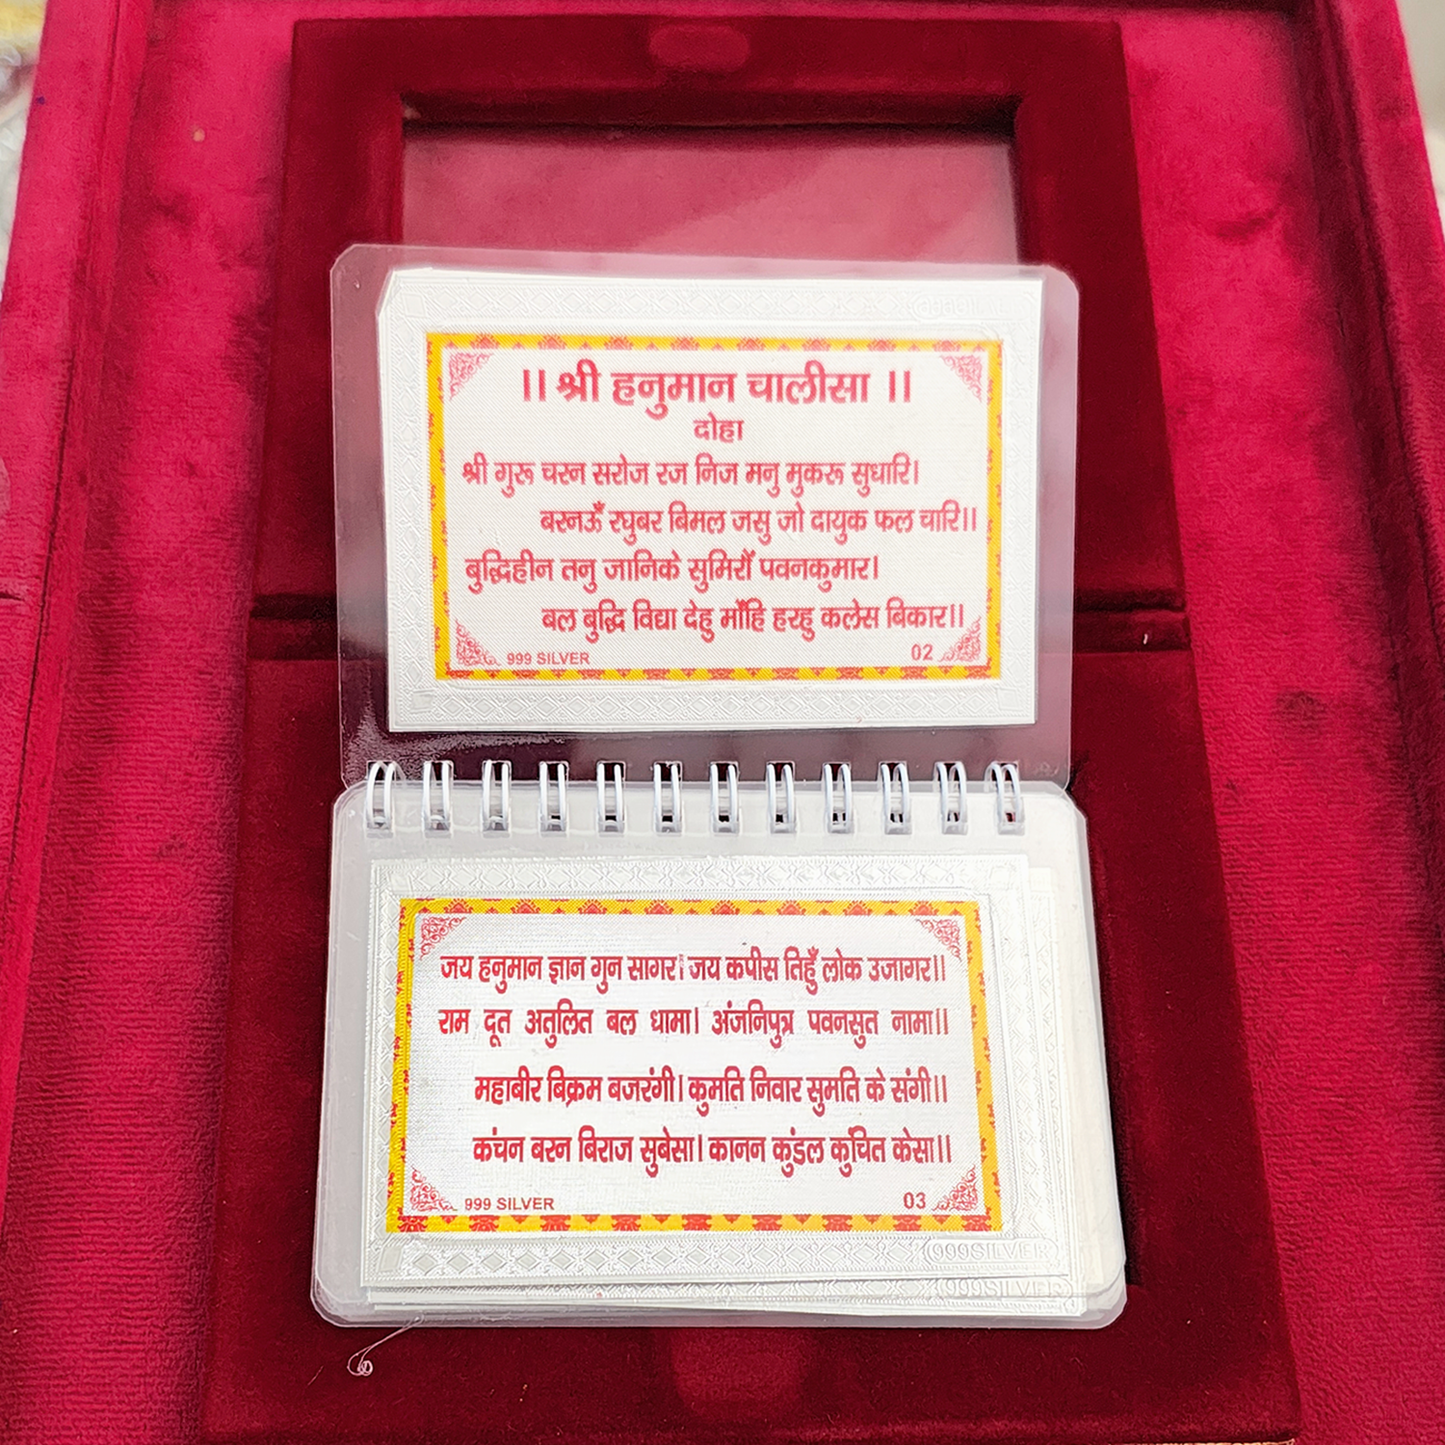 ।। श्री हनुमान चालीसा ।।
दोहा
श्री गुरू चरन सरोज रज निज मनु मुकरू सुधारि।
बरनऊँ रघुबर बिमल जसु जो दायुक फल चारि।।
बुद्धिहीन तनु जानिके सुमिरौं पवनकुमार।
बल बुद्धि विद्या देहु माँहि हरहु कलेस बिकार।।
999 SILVER 02
जय हनुमान ज्ञान गुन सागर। जय कपीस तिहुँ लोक उजागर।।
राम दूत अतुलित बल धामा। अंजनिपुत्र पवनसुत नामा।।
महाबीर बिक्रम बजरंगी। कुमति निवार सुमति के संगी।।
कंचन बरन बिराज सुबेसा। कानन कुंडल कुंचित केसा।।
999 SILVER 03
999SILVER
999SILVER